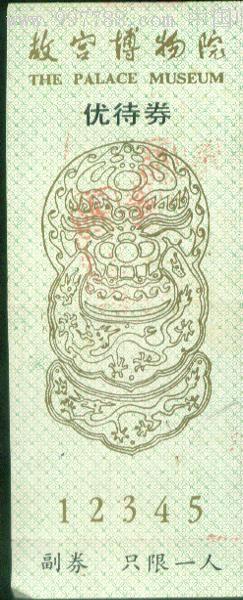 www.997788.com
故宫博物院
THE PALACE MUSEUM
优待券
12345
副券 只限一人